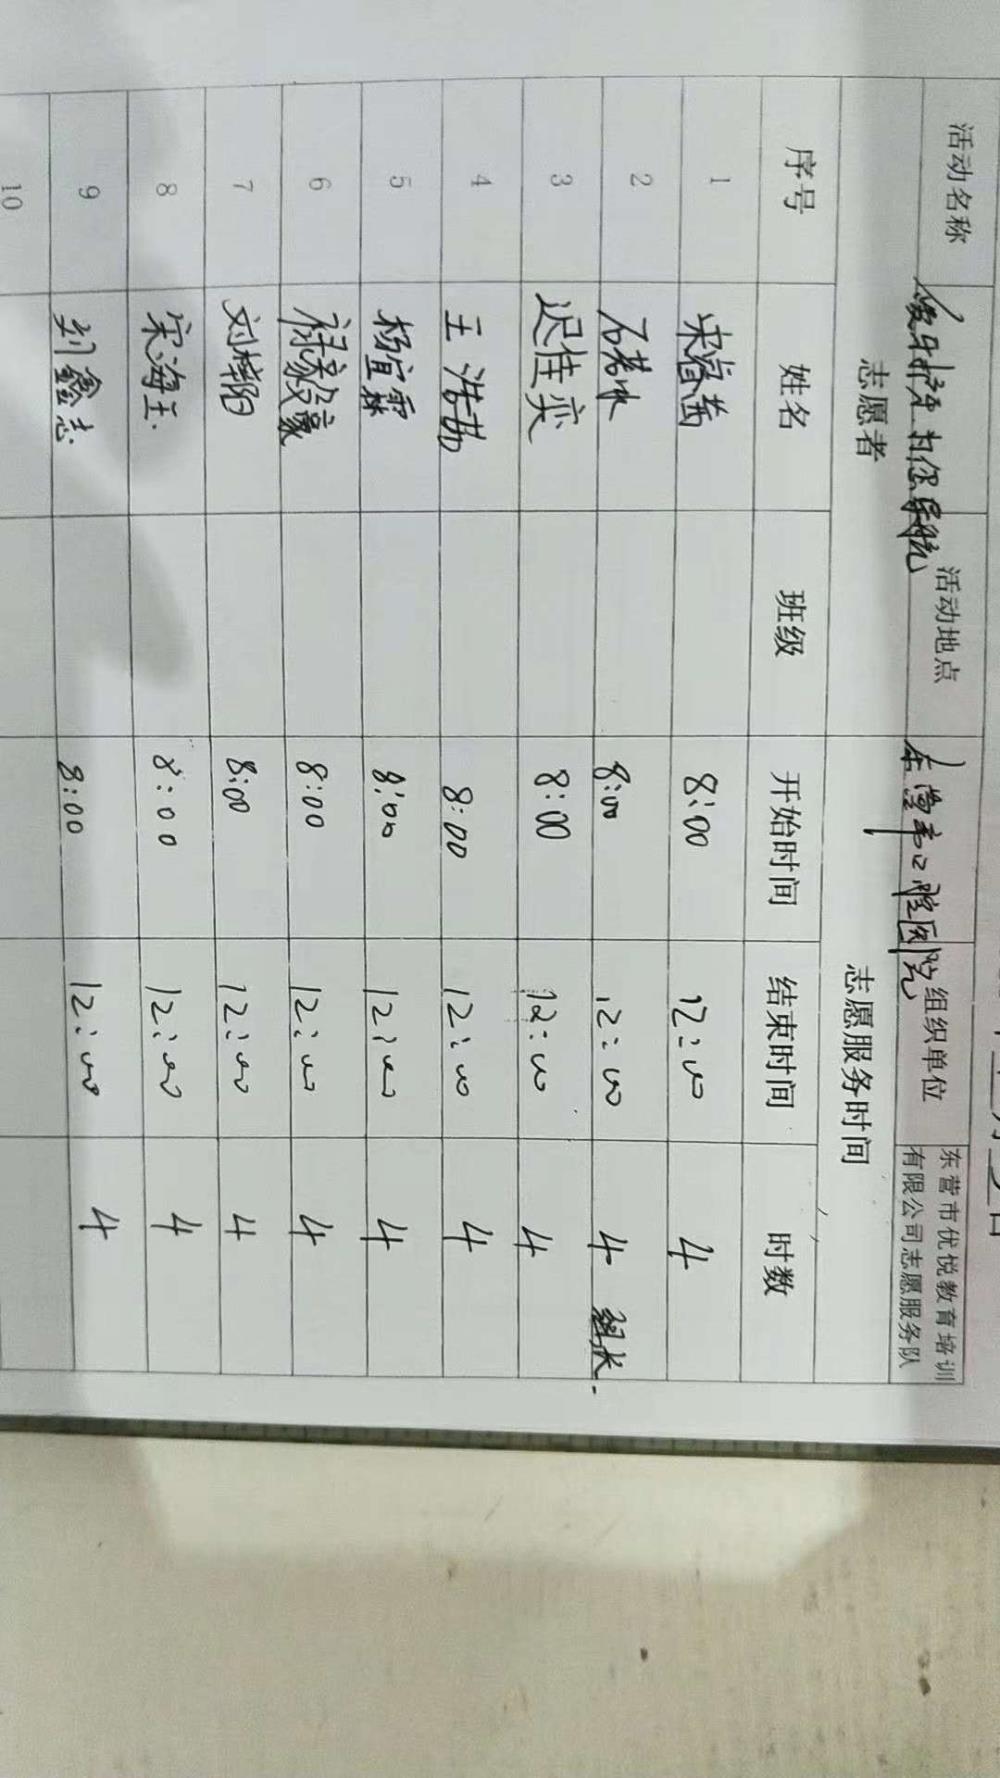 活动名称 爱牙护牙 为您导航 活动地点 东营市口腔医院 组织单位 东营市优悦教育培训有限公司志愿服务队
志愿者 志愿服务时间
序号 姓名 班级 开始时间 结束时间 时数
1 宋睿茜 8:00 12:00 4
2 石若冰 8:00 12:00 4 组长.
3 迟佳奕 8:00 12:00 4
4 王浩 8:00 12:00 4
5 杨宜霖 8:00 12:00 4
6 禄毅豪 8:00 12:00 4
7 刘梓阳 8:00 12:00 4
8 宋海玉 8:00 12:00 4
9 刘鑫志 8:00 12:00 4
10